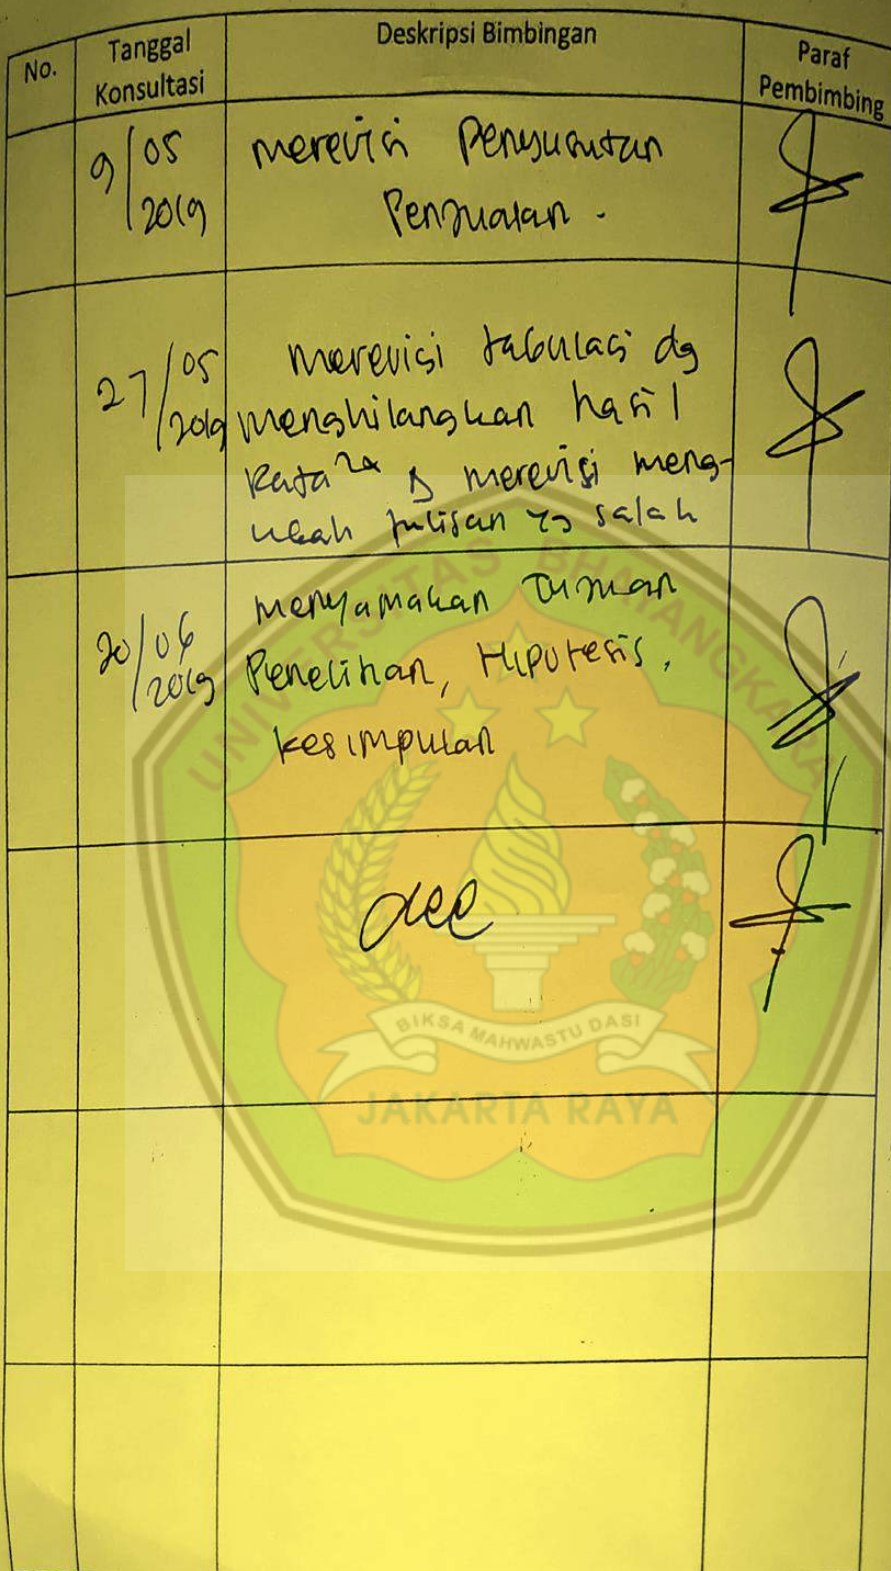 No.
Tanggal
Konsultasi
Deskripsi Bimbingan
Paraf
Pembimbing
9/05
2019
merevisi Penyusutan
Penjualan.
27/05
2019
merevisi tabulasi dg
menghilangkan hasil
merevisi meng-
ubah tulisan yg salah
20/06
2019
menyamakan Tujuan
Penelitian, Hipotesis,
kesimpulan
acc
UNIVERSITAS BHAYANGKARA
BIKSA MAHWASTU DASI
JAKARTA RAYA